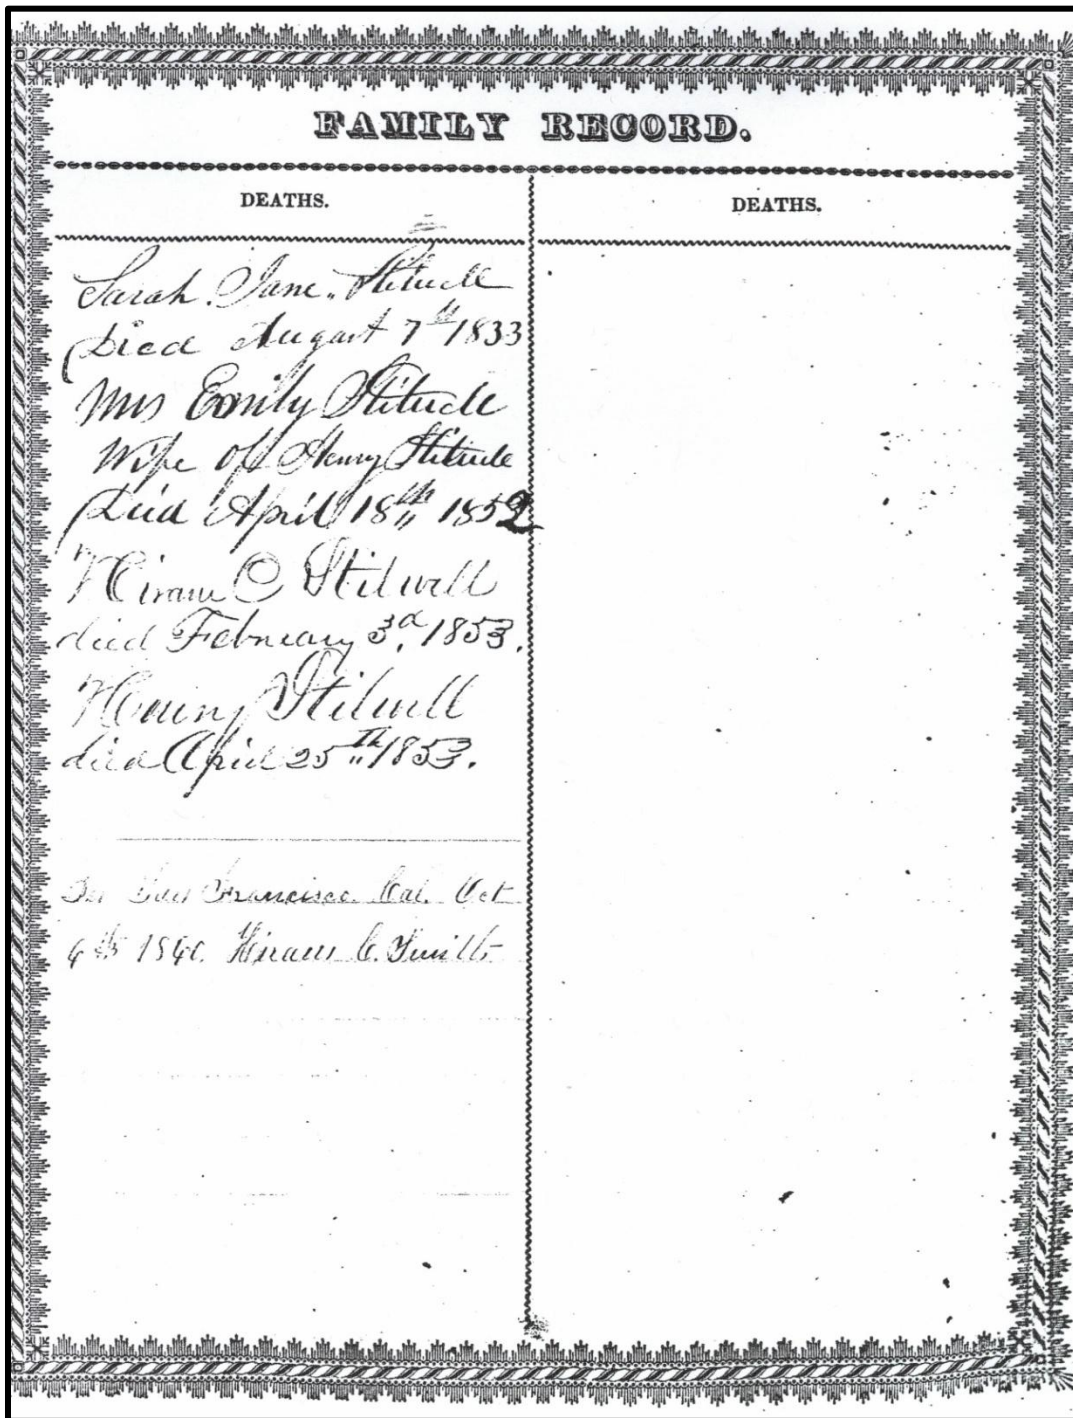 FAMILY RECORD.
DEATHS.
Sarah Jane Stilwell
Died August 7th 1833
Mrs Emily Stilwell
Wife of Henry Stilwell
Died April 18th 1852
Hiram C Stilwell
died February 3d. 1853.
Henry Stilwell
died April 25th 1853.
In San Francisco. Cal. Oct
Hiram C. Smith
DEATHS.